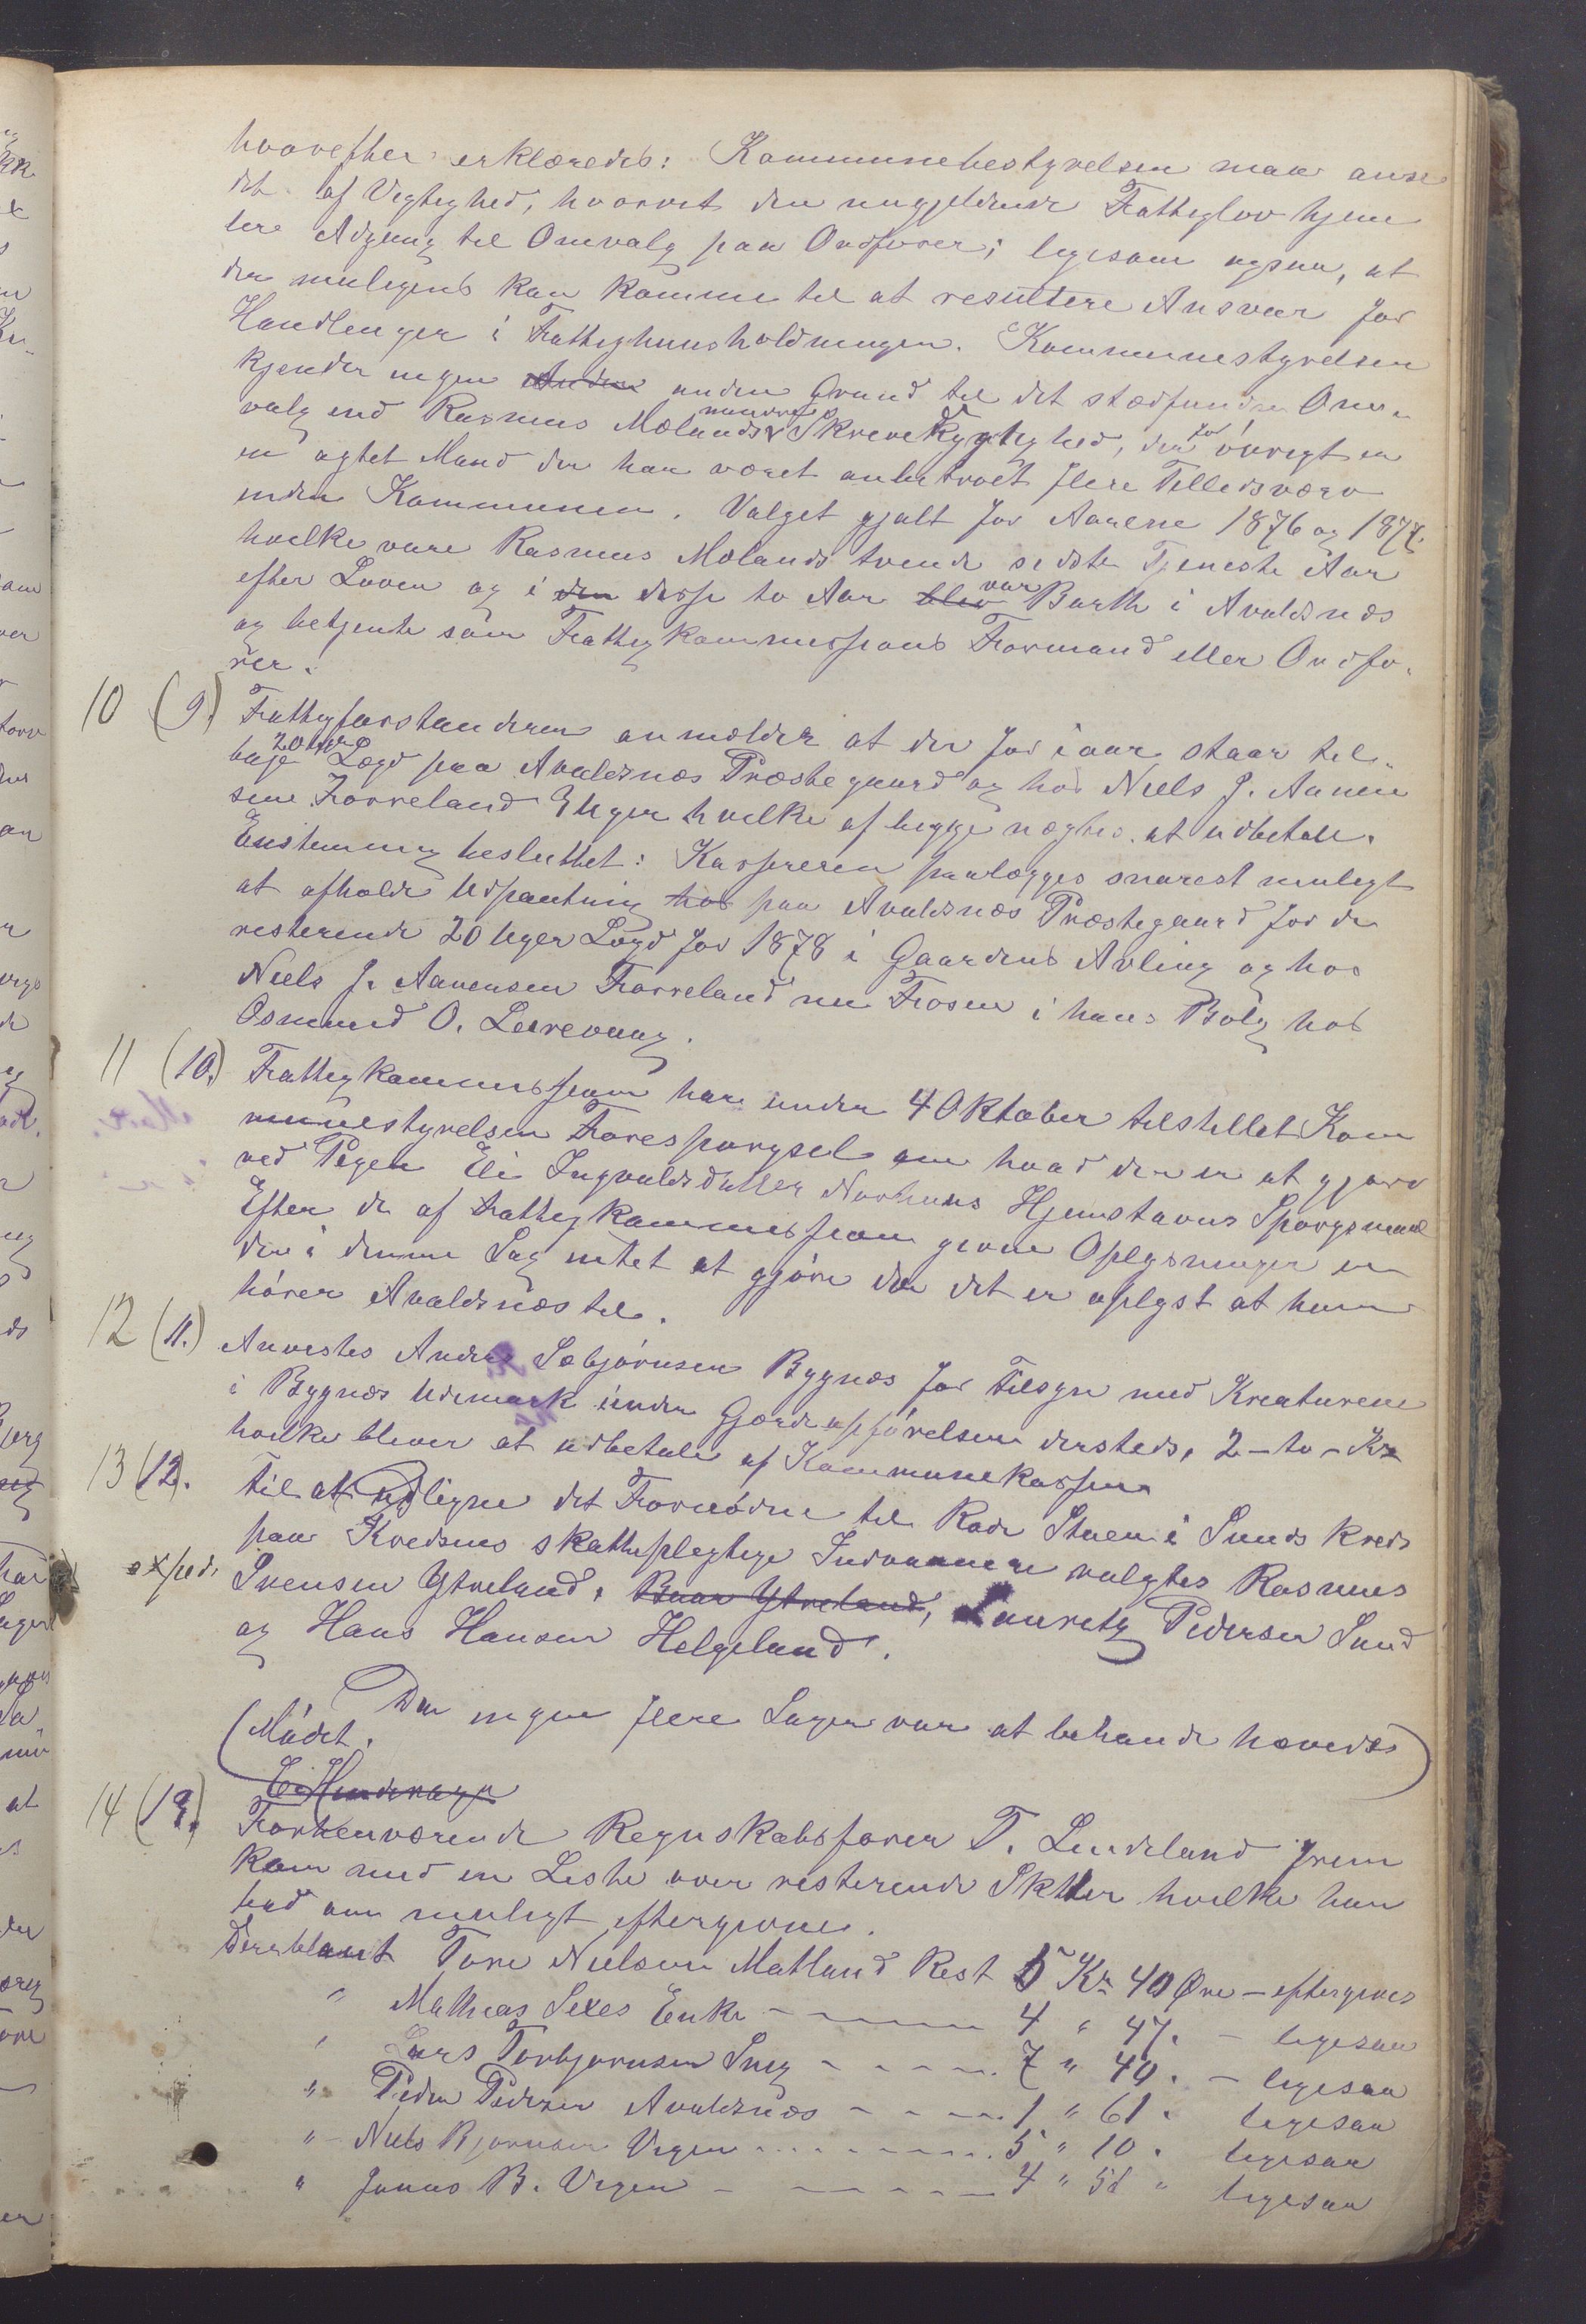 hvorefter erklæredes: Kommunebestyrelsen maa anse
det af Vigtighed, hvorvit den nugjeldende Fattiglov hjem
lere Adgang til Omvalg paa Ordfører; ligesom ogsaa, at
der muligens kan komme til at resultere Ansvar for
Handlinger i Fattighuusholdningen. Kommunestyrelsen
kjender ingen anden Grund til det stedfundne Om-
valg end Rasmus Mølands mindre Skrivekyndighed, der for øvrigt er
en agtet Mand der har været anbetroet flere Tillidsværv
inden Kommunen. Valget gjalt for Aarene 1876 og 1877.
hvilke vare Rasmus Mølands tvende sidste Tjeneste Aar
efter Loven og i den disse to Aar blev var Barth i Avaldsnæs
og betjente som Fattigkommissions Formand eller Ordfø-
rer.
10 (9.) Fattigforstanderen anmelder at der for iaar staar til-
bage 20 Uger Lægd paa Avaldsnæs Præstegaard og hos Niels J. Aanen
sen Førreland Uger hvilke af begge nægtes at udbetale.
Enstemmig besluttet: Kassereren paalægges snarest muligt
at afholde Udpantning hos paa Avaldsnæs Præstegaard for de
resterende 20 Uger Lægd for 1878 i Gaardens Avling og hos
Niels J. Aanensen Førreland nu Frosen i hans Bolig hos
Osmund O. Leirevaag.
11 (10.) Fattigkommissionen har under 4 Oktober tilstillet Kom
munestyrelsen Forespørgsel om hvad der er at gjøre
ved Pigen Eli Ingvaldsdatter Norhuus Hjemstavns Spørgsmaal
Efter de af Fattigkommissionen givne Oplysninger er
der i denne Sag intet at gjøre da det er oplyst at hun
hører Avaldsnæs til.
12 (11.) Anvistes Anders Sebjørnsen Bygnæs for Tilsyn med Kreaturene
i Bygnæs Udmark under Gjerdeopførelsen dersteds, 2 - to - Kr
hvilke bliver at udbetale af Kommunekassen
13 (12. Til at udligne det Fornødne til Rode Stuen i Sunds Kreds
paa Kredsens skattepligtige Indvaanere valgtes Rasmus
exped. Svensen Ytreland, Ytreland, Lauritz Pedersen Sund
og Hans Hansen Helgeland.
Da ingen flere Sager var at behandle hævedes
Mødet.
14 (13.) Forhenværende Regnskabsfører T. Lindeland frem
kom med en Liste over resterende Skatter hvilke han
bad om muligt eftergivne.
Deriblant Tore Nielsen Matland Rest 5 Kr 40 Øre - eftergives
" Mathias Sexes Enke - - - - 4 " 47. - ligesaa
" Lars Torbjørnsen Snig - - - - 7 " 40. - ligesaa
" Peder Pedersen Avaldsnæs - - - - 1 " 61. ligesaa
" Niels Bjørnsen Vigen - - - - 5 " 10. ligesaa
" Jonas B. Vigen - - - - 4 " 58 " ligesaa